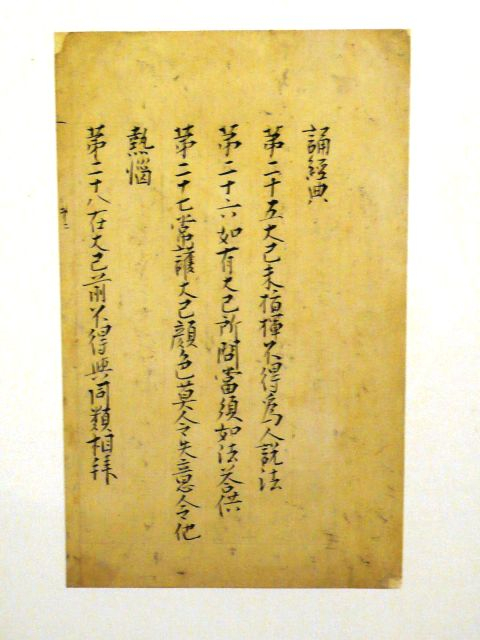 誦經典
苐二十五大己未指揮不得爲人説法
苐二十六如有大己所問當須如法荅供
苐二十七常護大己顔色莫令失意令他
熱惱
苐二十八在大己前不得與同類相拜